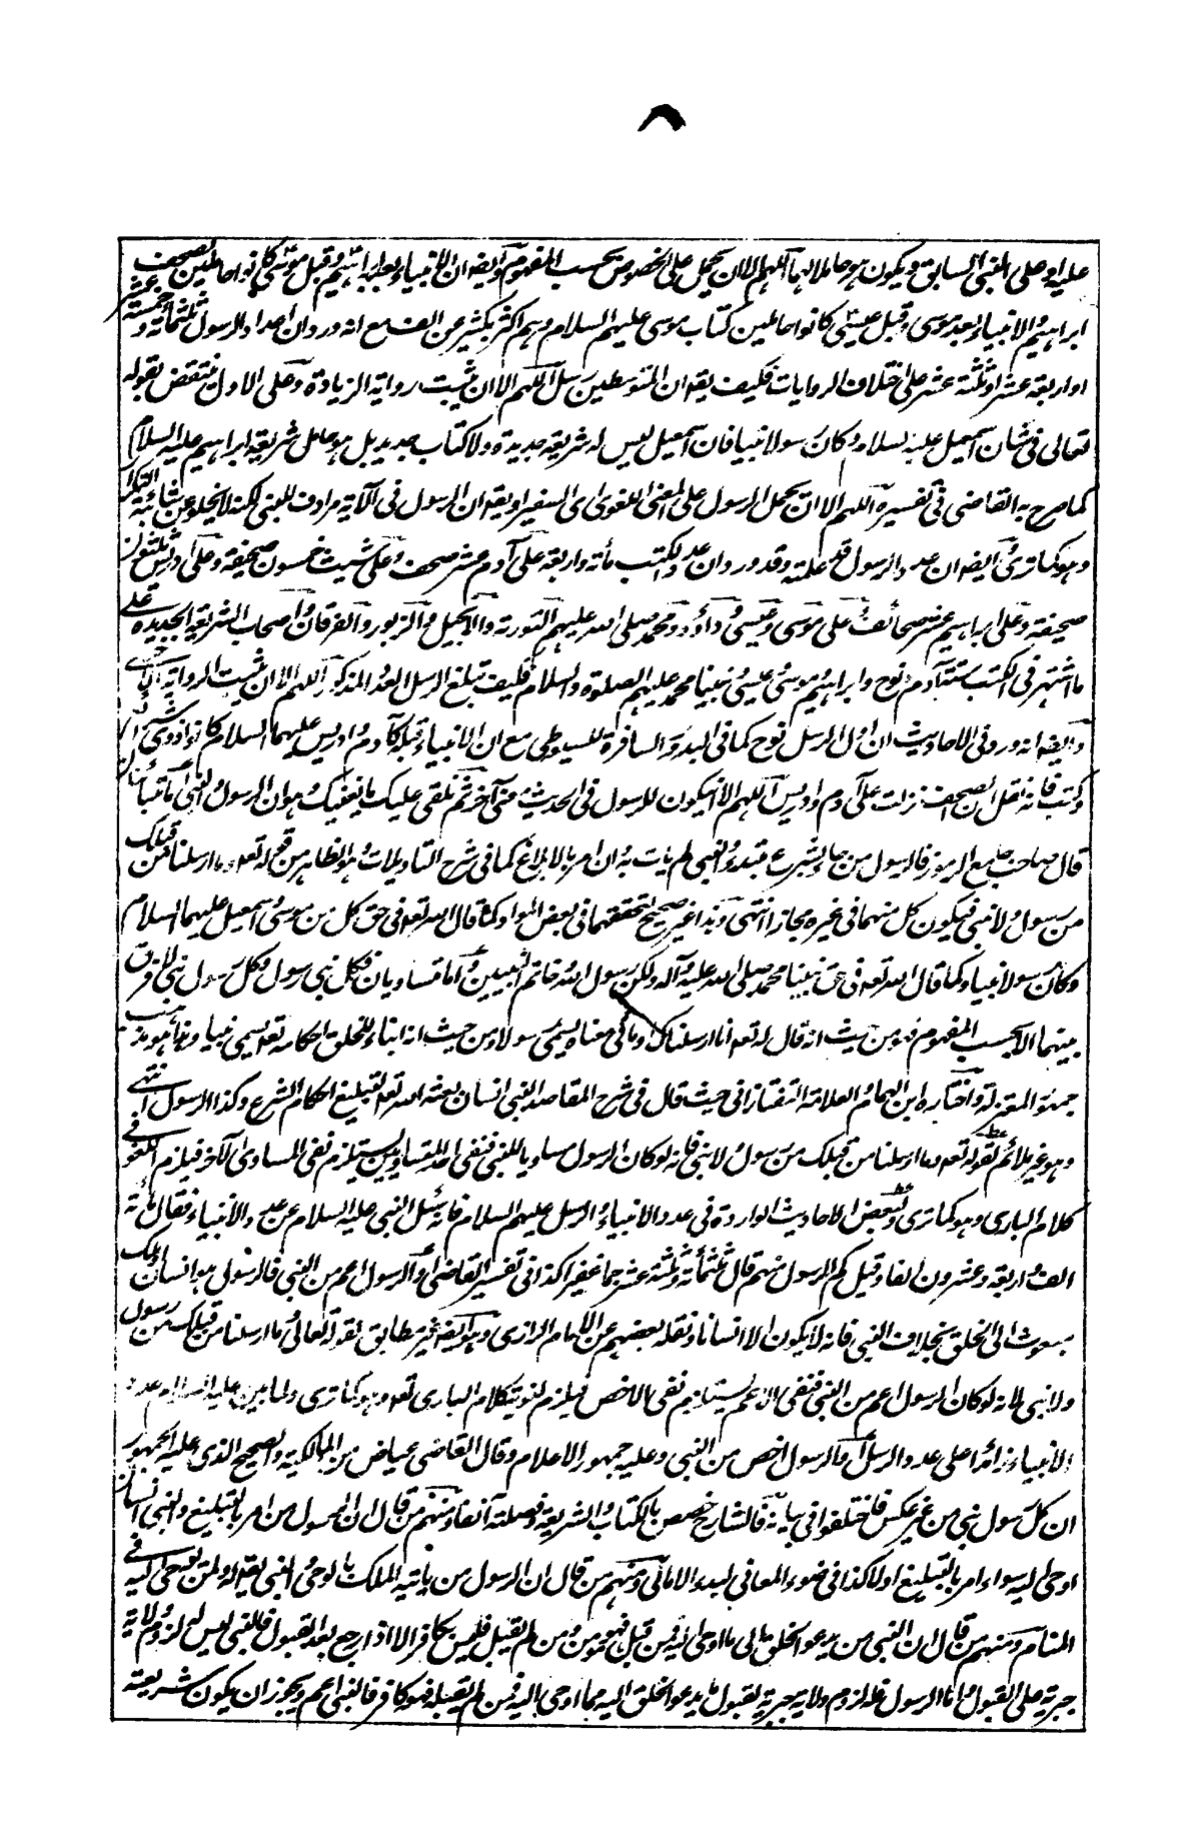 ٨
عليه او على النبى السابق ويكون هو حاملا لها اللهم الا ان يحمل على الخصوص بحسب المفهوم وايضه ان الانبياء بعد ابراهيم وقبل موسى كانوا حاملين لصحف
ابراهيم والانبياء بعد موسى وقبل عيسى كانوا حاملين كتاب موسى عليهم السلام وهم اكثر بكثير من الف مع انه ورد ان اعداد الرسول ثلثمائة وخمسة عشر
او اربعة عشر او ثلثة عشر على اختلاف الروايات فكيف يقه ان المتوسطين رسل اللهم الا ان يثبت رواية الزيادة وعلى الاول منتقض بقوله
تعالى فى شان اسمعيل عليه السلام وكان رسولا نبيا فان اسمعيل ليس له شريعة جديدة ولا كتاب جديد بل هو على شريعة ابراهيم عليه السلام
كما صرح به القاضى فى تفسيره اللهم الا ان يحمل الرسول على المعنى اللغوى اى السفير او يقه ان الرسول فى الآية مرادف للنبى لكنه لا يخلو عن شائبة التكرار
وهو كما ترى وايضه ان عدد الرسول قد علمته وقد ورد ان عدد الكتب مأة واربعة على آدم عشر صحف وعلى شيث خمسون صحيفة وعلى ادريس ثلثون
صحيفة وعلى ابراهيم عشر صحائف وعلى موسى وعيسى وداؤد ومحمد صلى الله عليهم التورية والانجيل والزبور والفرقان واصحاب الشريعة الجديدة على
ما اشتهر فى الكتب ستة آدم ونوح وابراهيم وموسى وعيسى ونبينا محمد عليهم الصلوة والسلام فكيف تبلغ الرسل العدد المذكور اللهم الا ان يثبت الرواية
وايضه انه ورد فى الاحاديث ان اول الرسل نوح كما فى البدور السافرة للسيوطى مع ان الانبياء قبله كآدم وادريس عليهما السلام كانوا ذوى
وكتب فانه نقل ان الصحف نزلت على آدم وادريس اللهم الا ان يكون للرسول فى الحديث معنى آخر ثم نلقى عليك ما ينفعك وهو ان الرسول والنبى اما متبائنان
قال صاحب جامع الرموز فالرسول من جاء بشرع مبتدء والنبى لم يات به وان امر بالابلاغ كما فى شرح التاويلات وهو الظاهر من قوله تعه وما ارسلنا من قبلك
من رسول ولا نبى فيكون كل منهما فى غيره مجازا انتهى وهذا غير صحيح لتحققهما فى بعض المواد كما قال الله تعه فى حق كل من موسى واسمعيل عليهما السلام
وكان رسولا نبيا وكما قال الله تعه فى حق نبينا محمد صلى الله عليه وآله ولكن رسول الله وخاتم النبيين واما متساويان فكل نبى رسول وكل رسول نبى لا فرق
بينهما الا بحسب المفهوم فهو من حيث انه قال له تعه انا ارسلناك وما فى معناه يسمى رسولا ومن حيث انه انباء للخلق احكامه تعه يسمى نبيا وهذا هو مذهب
جمهور المعتزلة واختاره ابن الهمام والعلامة التفتازانى حيث قال فى شرح المقاصد النبى انسان بعثه الله تعه لتبليغ احكام الشرع وكذا الرسول انتهى
وهو غير ملائم لقوله تعه وما ارسلنا من قبلك من رسول ولا نبى فانه لو كان الرسول مساويا للنبى فنفى احد المتساويين يستلزم نفى المساوى الآخر فيلزم اللغو فى
كلام البارى وهو كما ترى ولبعض الاحاديث الواردة فى عدد الانبياء والرسل عليهم السلام فانه سئل النبى عليه السلام عن عدد الانبياء فقال مأة
الف واربعة وعشرون الفا وقيل كم الرسول منهم قال ثلثمأة وثلثة عشر جما غفيرا كذا فى تفسير القاضى واما الرسول اعم من النبى فالرسول هو انسان او ملك
مبعوث الى الخلق بخلاف النبى فانه لا يكون الا انسانا ونقله بعضهم عن الامام الرازى وهو ايضه غير مطابق لقوله تعالى وما ارسلنا من قبلك من رسول
ولا نبى لانه لو كان الرسول اعم من النبى فنفى الاعم يستلزم نفى الاخص فيلزم لغوية كلام البارى تعه وهو كما ترى ولما بين عليه السلام عدد
الانبياء زائدا على عدد الرسل واما الرسول اخص من النبى وعليه جمهور الاعلام وقال القاضى عياض من المالكية والصحيح الذى عليه الجمهور
ان كل رسول نبى من غير عكس فاختلفوا فى بيانه فالشارح خصص بالكتاب والشريعة وفصلته آنفا ومنهم من قال ان الرسول من امر بالتبليغ والنبى انسان
اوحى اليه سواء امر بالتبليغ او لا كذا فى ضوء المعانى لبدء الامالى ومنهم من قال ان الرسول من يأتيه الملك بالوحى والنبى يقه له ولمن يوحى اليه فى
المنام ومنهم من قال ان النبى من يدعو الخلق الى ما اوحى اليه فمن قبل فهو مؤمن ومن لم يقبل فليس بكافر الا اذا رجع بعد القبول فالنبى ليس له لزوم ولاية
جبرية على القبول واما الرسول فله لزوم ولاية جبرية لقبول ما يدعو الخلق اليه مما اوحى اليه فمن لم يقبله فهو كافر فالنبى اعم ويجوز ان يكون شريعته